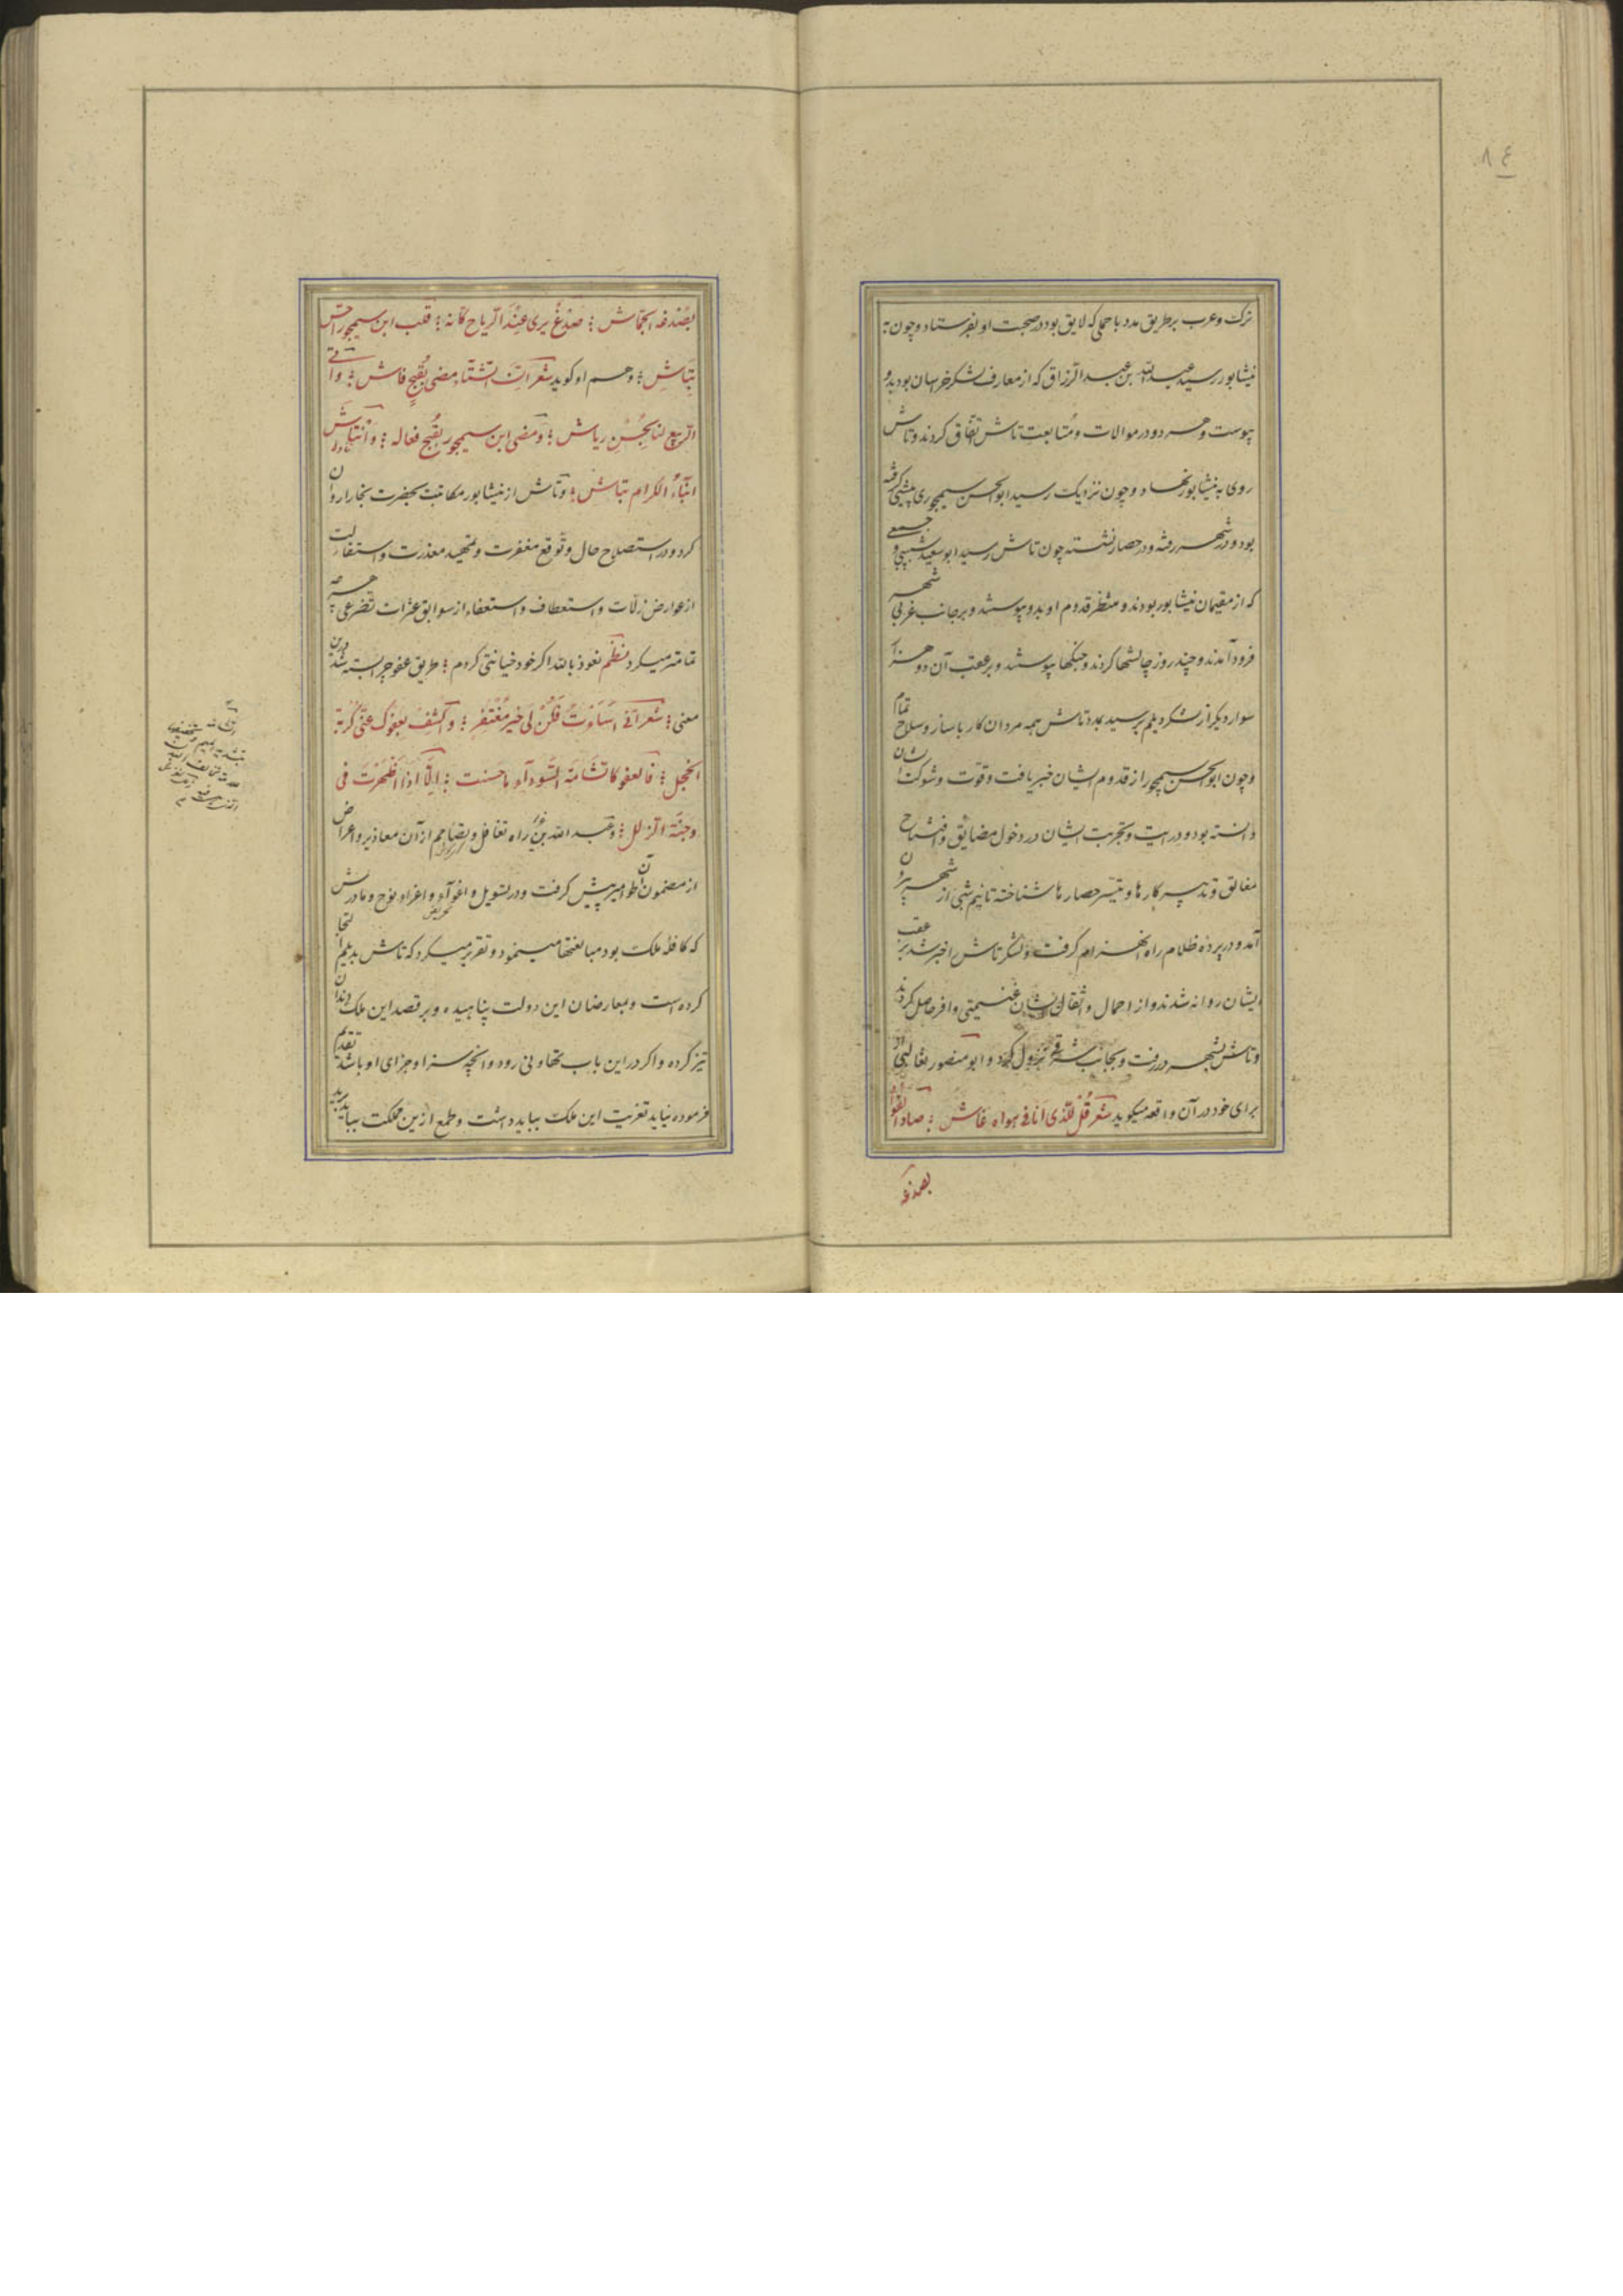 ۸٤
ترک و عرب بر طریق مدد با حملی که لایق بود در صحبت او بفرستاد و چون به
نیشابور رسید عبدالله بن عبدالرزاق که از معارف لشکر خراسان بود بدو
پیوست و هر دو در موالات و متابعت تاش اتفاق کردند و تاش
روی به نیشابور نهاد و چون نزدیک رسید ابوالحسن سیمجوری پیشی گرفته
بود و در شهر رفته و در حصار نشسته چون تاش رسید ابوسعید شبیبی و جمعی
که از مقیمان نیشابور بودند و منتظر قدوم او بدو پیوستند و بر جانب غربی شهر
فرود آمدند و چند روز چالشها کردند و جنگها پیوستند و بر عقب آن دو هزار
سوار دیگر از لشکر دیلم برسید بمدد تاش همه مردان کار با ساز و سلاح تمام
و چون ابوالحسن سیمجور از قدوم ایشان خبر یافت و قوت و شوکت ایشان
دانسته بود و درایت و تجربت ایشان در دخول مضایق و افتتاح
مغالق و تدبیر کارها و تیسر حصارها شناخته تا نیم شبی از شهر بیرون
آمد و در پرده ظلام راه انهزام گرفت و لشکر تاش را خبر شد بر عقب
ایشان روانه شدند و از احمال و اثقال ایشان غنیمتی وافر حاصل کردند
و تاش بشهر در رفت و بجانب شرقی نزول کرد و ابو منصور ثعالبی از
برای خود در آن واقعه میگوید شعر قل للذی انا فی هواه غاش ؛ صاد الفؤاد
بصدغه
بصدغه الجماش ؛ صدغ یری عند الریاح کانه ؛ قلب ابن سیمجور احس
بتاش ؛ و هم او گوید شعر ان الشتاء مضی بقبح فاش ؛ و اتی
الربیع لنا بحسن ریاش ؛ و مضی ابن سیمجور بقبح فعاله ؛ و انتاش
ابناء الکرام بتاش ؛ و تاش از نیشابور مکاتبت بحضرت بخارا روان
کرد و در استصلاح حال و توقع مغفرت و تمهید معذرت و استقالت
از عوارض زلات و استعطاف و استعفاء از سوابق عثرات تضرعی هر چه
تمامتر میکرد نظم نعوذ بالله اگر خود خیانتی کردم ؛ طریق عفو چرا بسته شد درین
معنی ؛ شعر انی اساءت فکن لی خیر مغتفر ؛ واکشف بعفوک عنی کربة
الخجل ؛ فالعفو کالشامة السوداء ما حسنت ؛ الا اذا اظهرت فی
وجنة الزلل ؛ و عبد الله بن عزیر راه تغافل و تصامم از آن معاذیر و اعراض
از مضمون آن طوامیر پیش گرفت و در تسویل و اغواء و اغراء نوح و مادرش
که کافله ملک بود مبالغتها مینمود و تقریر میکرد که تاش بدیلم التجا
کرده است و بمعارضان این دولت پناهیده و بر قصد این ملک دندان
تیز کرده و اگر در این باب تهاونی رود و آنچه سزا و جزای او باشد تقدیم
فرموده نیاید تعزیت این ملک بباید داشت و طمع ازین مملکت بباید برید